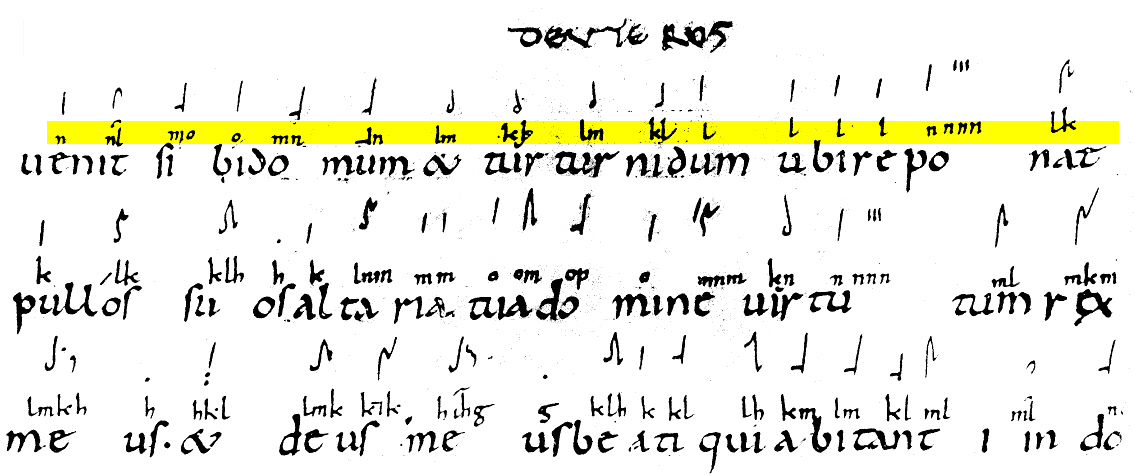 DEVTEROS
n nl mo o mn ln lm lm kl l l l l nnnn lk
uenit si bido mum & tur tur nidum ubirepo nat
k lk klh h k lnm mm o om op o mnm kn n nnn ml mkm
pullos su os alta ria. tuado mine uirtu tum rex
lmkh h hkl lmk h g klh k kl lh km lm kl ml n
me us. & deus me us be ati qui abitant i in do